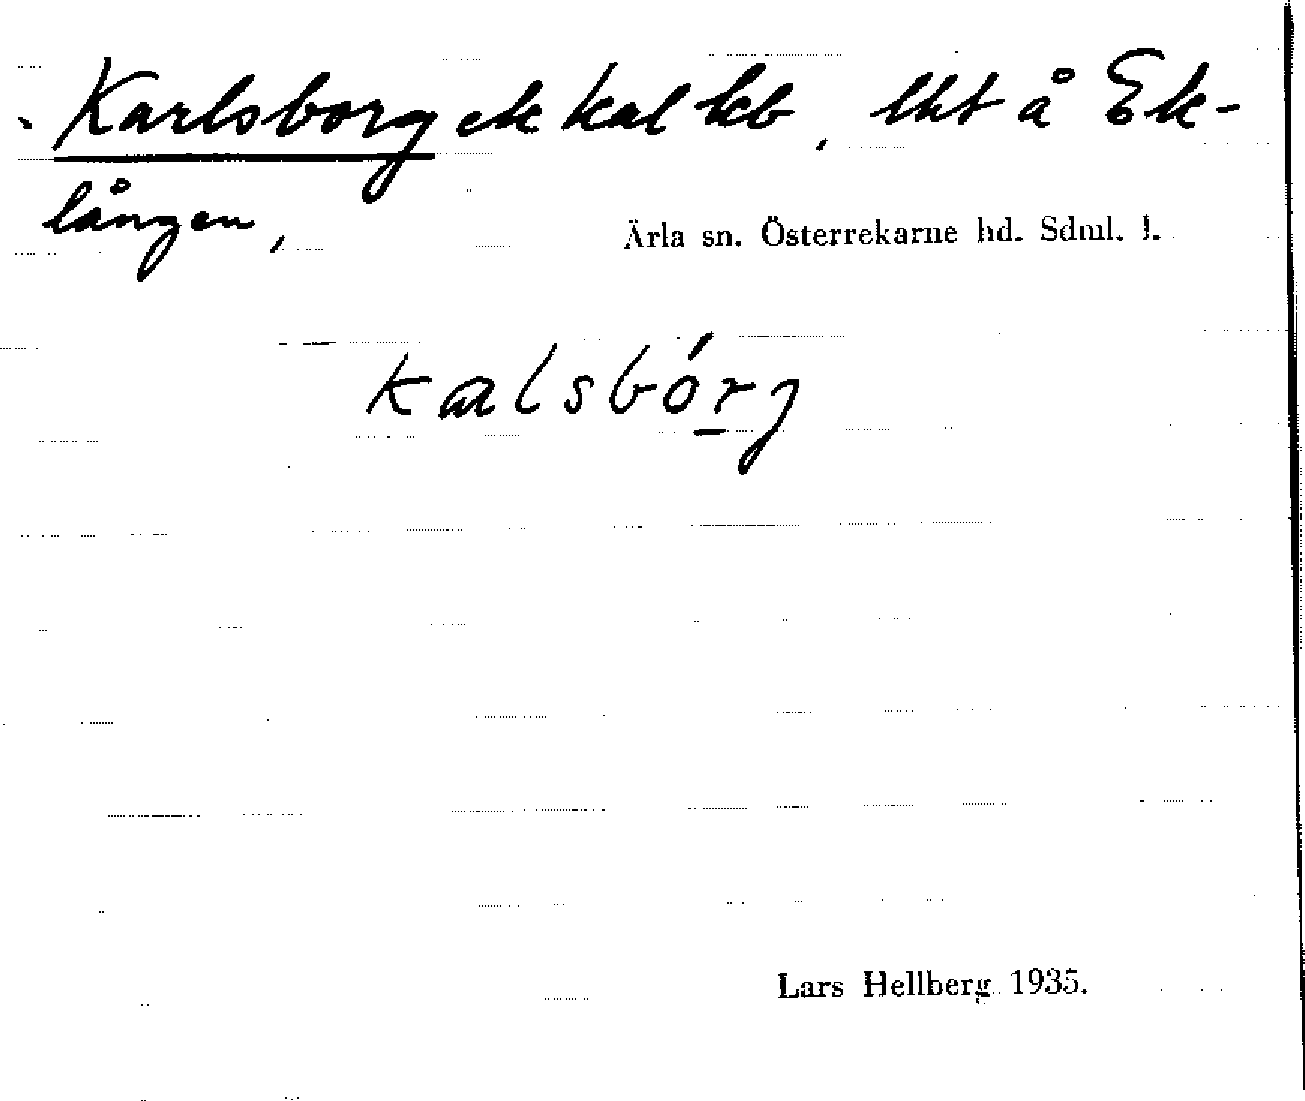 Karlsborg ek kal kb, lht å Ek-
lången,
Ärla sn. Österrekarne hd. Sdml. l.
kalsbórg
Lars Hellberg 1935.